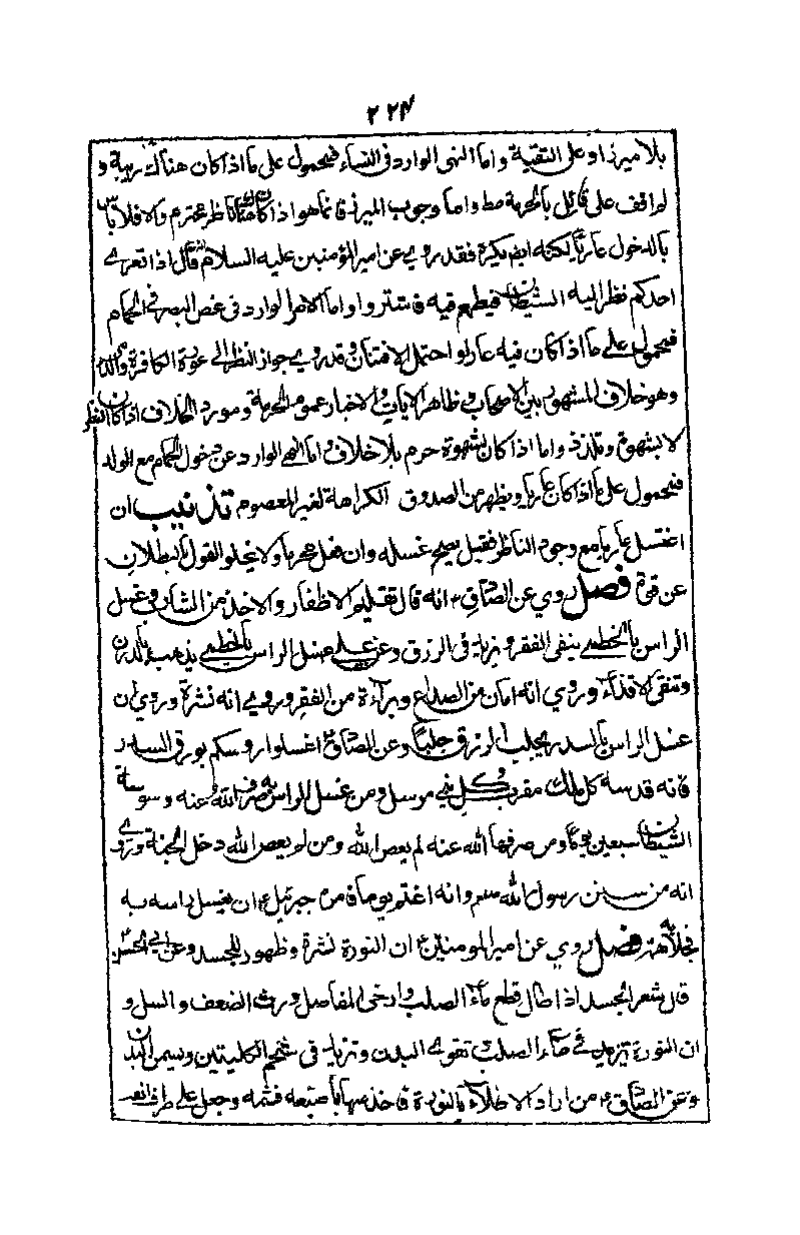 ٢٢٤
بلا ميزر او على التقية واما النهى الوارد فى النساء فمحمول على ما اذا كان هناك ريبة و
لم اقف على قائل بالحرمة مط واما وجوب الميزر فانما هو اذا كان هناك ناظر محترم والا فلا باس
بالدخول عاريا لكنه ايضا يكره فقد روي عن امير المؤمنين عليه السلام انه قال اذا تعرى
احدكم نظر اليه الشيطان فيطمع فيه فاستتروا واما الامر الوارد فى غض البصر فى الحمام
فمحمول على ما اذا كان فيه عار او احتمل الافتتان وقد روي جواز النظر الى عورة الكافرة
وهو خلاف المشهور بين الاصحاب وظاهر الايات والاخبار عموم الحرمة ومورد الخلاف اذا كان النظر
لا بشهوة وتلذذ واما اذا كان بشهوة حرم بلا خلاف واما النهى الوارد عن دخول الحمام مع الولد
فمحمول على ما اذا كان عاريا ويظهر من الصدوق الكراهة لغير المعصوم تذنيب ان
اغتسل عاريا مع وجود الناظر فقيل يصح غسله وان فعل محرما ولا يخلو القول بالبطلان
عن قوة فصل روي عن الصادق ع انه قال تقليم الاظفار والاخذ من الشارب وغسل
الراس بالخطمى ينفى الفقر ويزيد فى الرزق وعن على غسل الراس بالخطمى يذهب بالدرن
وتنقى الاقذاء وروي انه امان من الصداع وبراءة من الفقر وروي انه نشرة وروي ان
غسل الراس بالسدر يجلب الرزق جلبا وعن الصادق ع اغسلوا روسكم بورق السدر
فانه قدسه كل ملك مقرب وكل نبى مرسل ومن غسل الراس به صرف الله عنه وسوسة
الشيطان سبعين يوما ومن صرفها الله عنه لم يعص الله ومن لم يعص الله دخل الجنة وروي
انه من سنن رسول الله صم وانه اغتم يوما فامره جبرئيل ع ان يغسل راسه به
فصل روي عن امير المومنين ع ان النورة نشرة وطهور للجسد وعن ابى الحسن
قال شعر الجسد اذا طال قطع ماء الصلب وارخى المفاصل وورث الضعف والسل و
ان النورة تزيد فى ماء الصلب تقوى البدن وتزيد فى شحم الكليتين وتسمن البدن
وعن الصادق ع من اراد الاطلاء بالنورة فاخذ منها باصبعه فشمه وجعل على طرف انفه